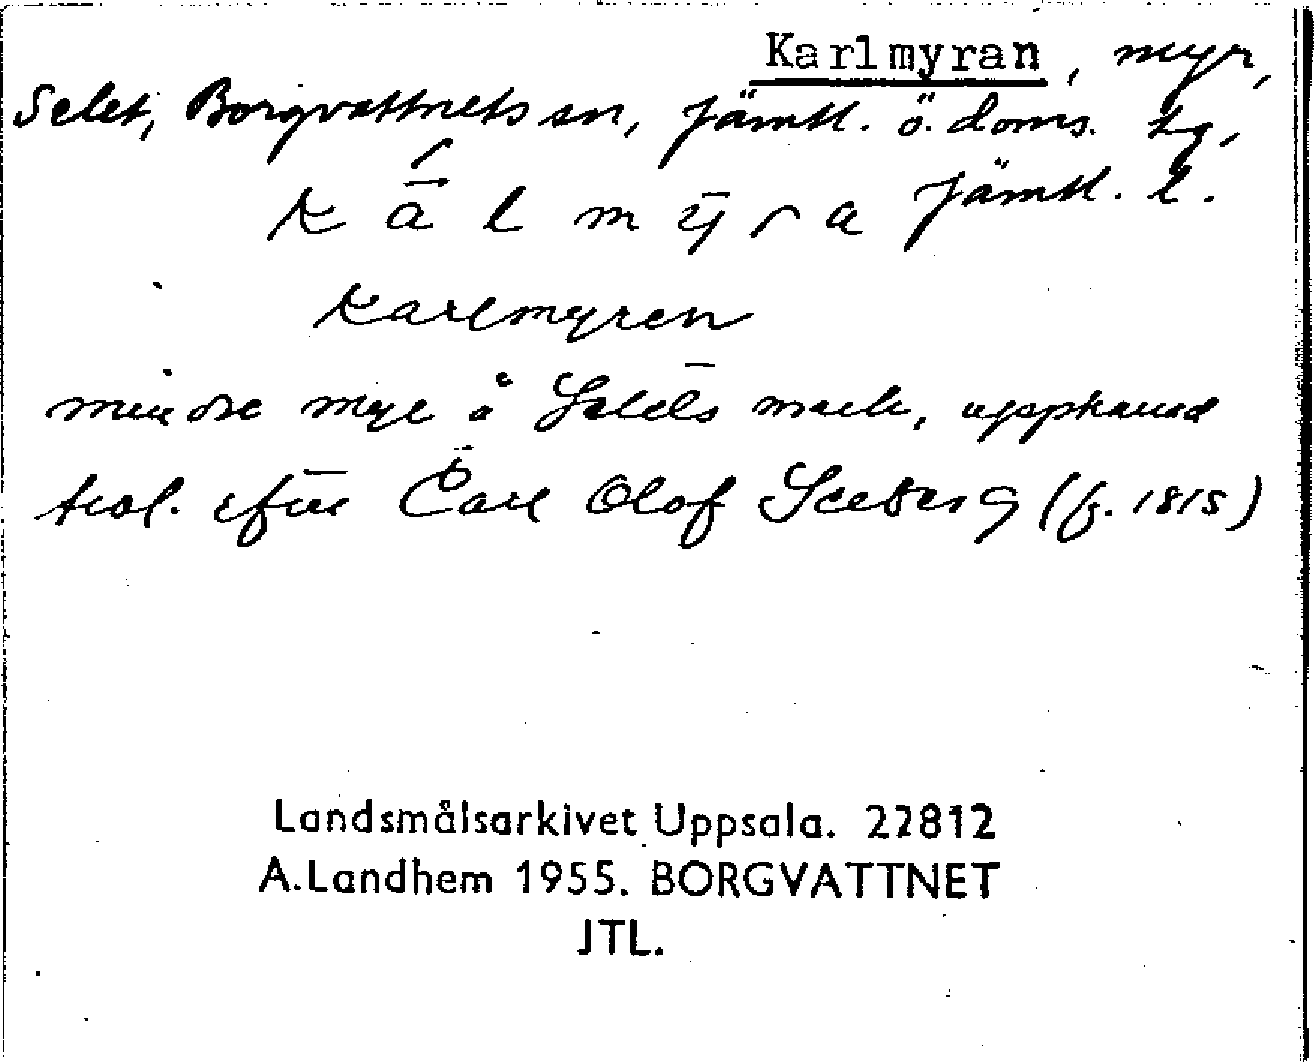 Karlmyran, myr,
Selet, Borgvattnets sn, Jämtl. ö. doms. tg,
Jämtl. l.
kālmȳra
Karlmyren
mindre myr å Selets mark, uppkallad
trol. efter Carl Olof Seeberg (f. 1815)
Landsmålsarkivet Uppsala. 22812
A.Landhem 1955. BORGVATTNET
JTL.